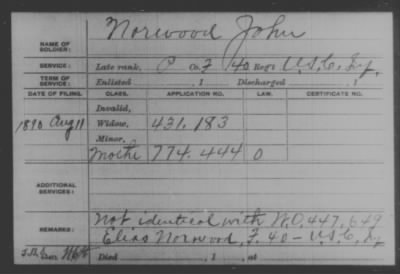 Norwood John
NAME OF SOLDIER:
SERVICE: Late rank, P Co. F 40 Reg't U.S.C. Inf.
TERM OF SERVICE: Enlisted , 1 Discharged , 1
DATE OF FILING. CLASS. APPLICATION NO. LAW. CERTIFICATE NO.
Invalid,
1890 Aug 11 Widow, 431.183
Minor,
Mothe 774.444 O
ADDITIONAL SERVICES:
REMARKS: Not identical with W.O. 447,649
Elias Norwood, F. 40 - U.S.C. Inf
Died , 1 , at